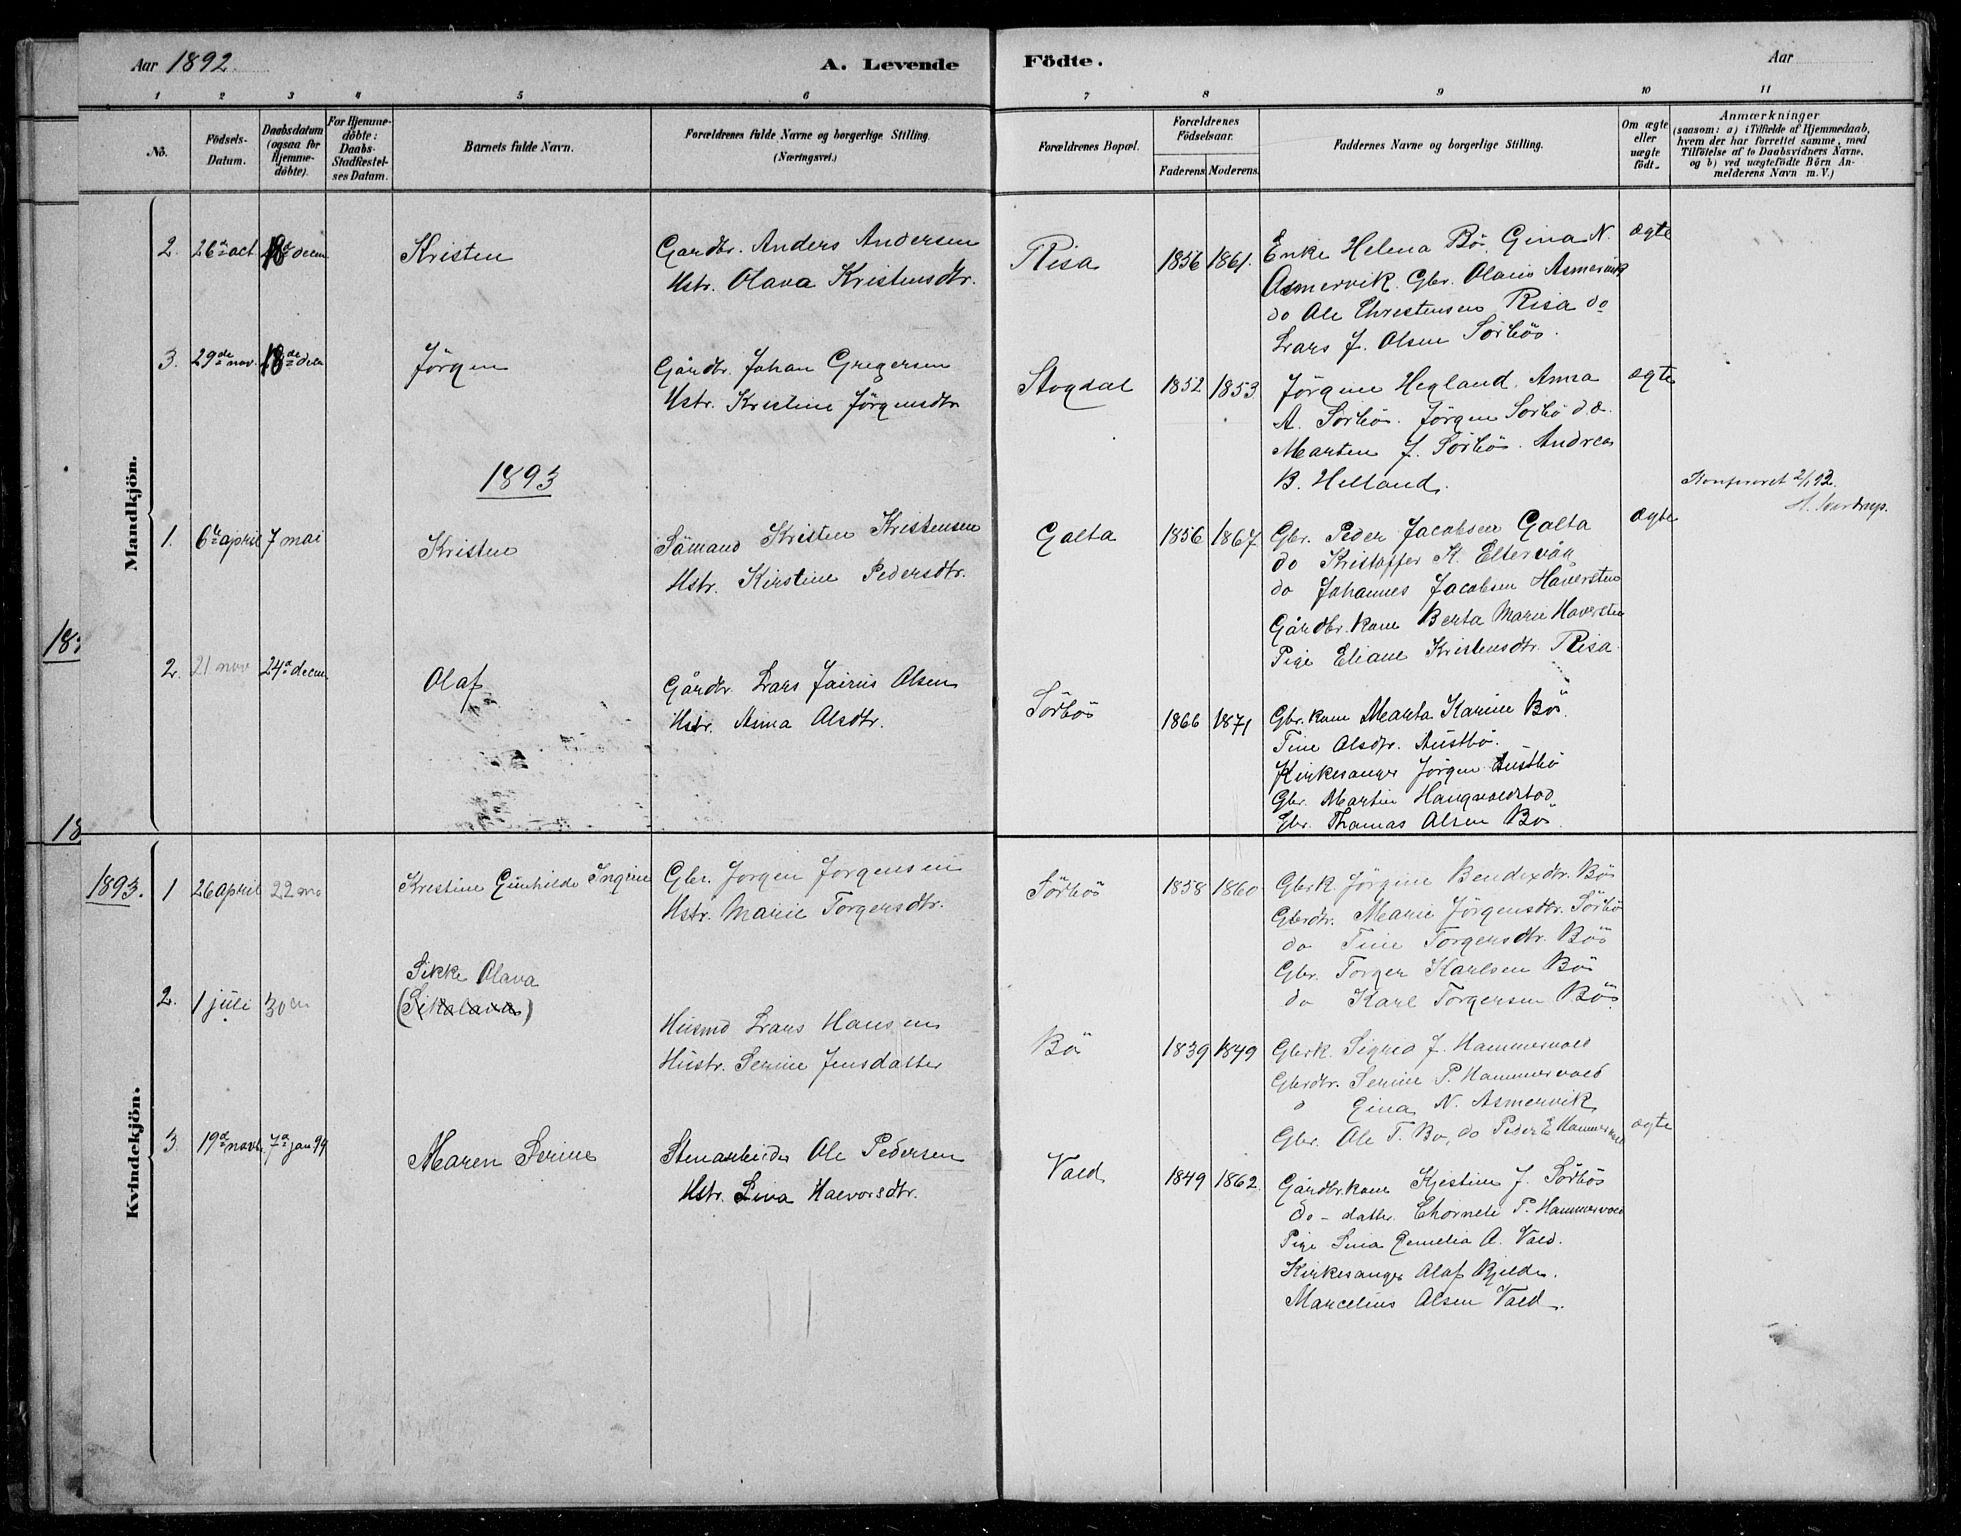 Aar 1892.
A. Levende Födte.
Aar
1 2 3 4 5 6 7 8 9 10 11
No.
Födsels-Datum.
Daabsdatum (ogsaa for Hjemme-döbte).
For Hjemme-döbte: Daabs-Stadfæstel-ses Datum.
Barnets fulde Navn.
Forældrenes fulde Navne og borgerlige Stilling. (Næringsvei.)
Forældrenes Bopæl.
Forældrenes Födselsaar.
Faderens Moderens.
Faddernes Navne og borgerlige Stilling.
Om ægte eller uægte födt.
Anmærkninger
(saasom: a) i Tilfælde af Hjemmedaab,
hvem der har forrettet samme, med
Tilföielse af to Daabsvidners Navne,
og b) ved uægtefödte Börn An-
melderens Navn m. V.)
Mandkjön.
2. 26de oct 18de decem Kristen
Gardbr. Anders Andersen
Hstr. Olava Kristensdtr.
Risa 1856 1861.
Enke Helena Bö. Gina N.
Asmervik. Gbr. Olaus Asmervik
do Ole Chrestensen Risa do
Lars J. Olsen Sörbös.
ægte
3. 29de nov. 18de decm Jörgen
Gårdbr. Johan Gregersen
Hstr. Kristine Jörgensdtr
Stogdal 1852 1853
Jörgine Hegland. Anna
A. Sörbös. Jörgen Sörbö d.æ.
Marten J. Sörbös. Andreas
B. Helland.
ægte
Konfereret 2/1 93.
1893
1. 6te april 7 mai Kristen
Sömand Kristen Kristensen
Hstr. Kirstine Pedersdtr.
Galta 1856 1867
Gbr. Peder Jacobsen Galta
do Kristoffer K. Eltervåg
do Johannes Jacobsen Haversten
Gårdbr. kone Berta Marie Haversten
Pige Eliane Kristensdtr. Risa
ægte
2. 21 nov 24de decem Olaf
Gårdbr. Lars Jairus Olsen
Hstr. Anna Olsdtr.
Sörbös 1866 1871
Gbr. kone Marta Karine Bö.
Tine Olsdtr. Austbö.
Kirkesanger Jörgen Austbö
Gbr. Martin Haugvaldstad
Gbr. Thomas Olsen Bö
Kvindekjön.
1893. 1 26 april 22 ma Kristine Gunhilde Ingrine
Gbr. Jörgen Jörgensen
Hstr. Marie Torgersdtr.
Sörbös 1858 1860
Gbrk. Jörgine Bendixdtr. Bö
Gbrdtr. Marie Jörgensdtr. Sörbö
do Tine Torgersdtr. Bö
Gbr. Torger Karlsen Bö
do Karl Torgersen Bö
2. 1 juli 30
Sikke Olava
(Sikolava)
Husmd Lars Hansen
Hustr. Serine Jensdatter
Bö 1839 1849
Gbrk. Sigrid J. Hammervold
Gbrdtr. Serine P. Hammervold
" Gina N. Asmervik
Gbr. Ole T. Bö, do Peder E Hammervold
3 19de novbr. 7de jan 94 Maren Serine
Stenarbeider Ole Pedersen
Hstr. Lina Halvorsdtr.
Vold 1849 1862.
ægte
Gårdbr. kone Kjestine J. Sörbös
do - datter. Thornele P. Hammervold
Pige Lina Cemelia O. Vold.
Kirkesanger Olaf Bjelde.
Marcelius Olsen Vold.
18
18